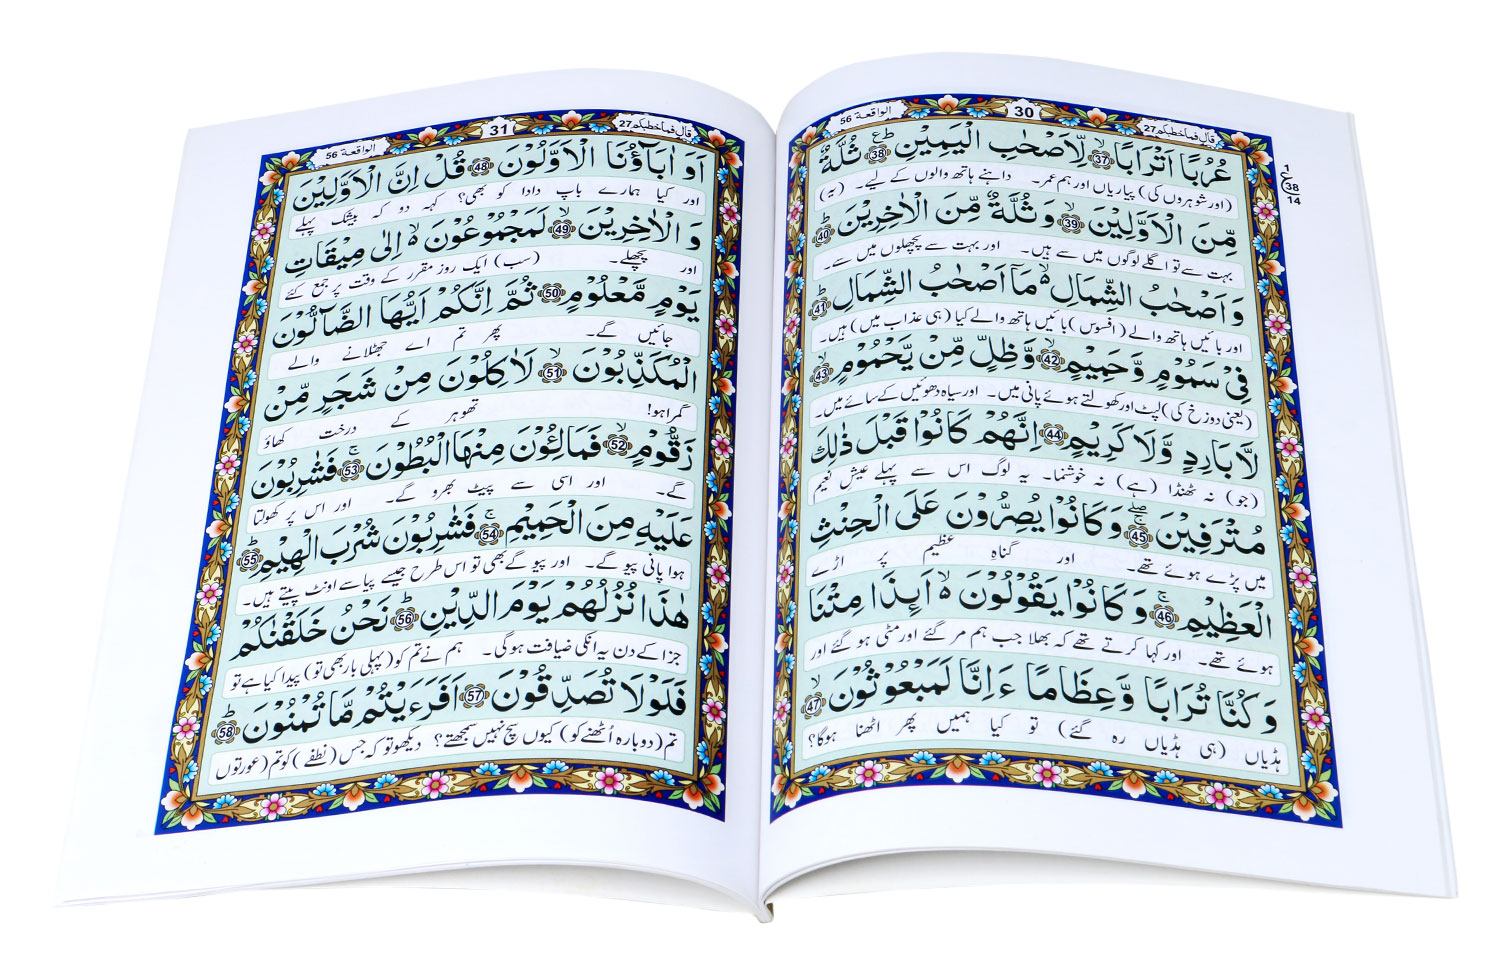 قال فما خطبکم 27
30
الواقعة 56
عُرُبًا اَتْرَابًا ﴿37﴾ لِّاَصْحٰبِ الْيَمِيْنِ ﴿38﴾ ثُلَّةٌ
(اور شوہروں کی) پیاریاں اور ہم عمر۔ داہنے ہاتھ والوں کے لیے۔ (یہ)
مِّنَ الْاَوَّلِيْنَ ﴿39﴾ وَ ثُلَّةٌ مِّنَ الْاٰخِرِيْنَ ﴿40﴾
بہت سے تو اگلے لوگوں میں سے ہیں۔ اور بہت سے پچھلوں میں سے۔
وَ اَصْحٰبُ الشِّمَالِ ۙ مَاۤ اَصْحٰبُ الشِّمَالِ ﴿41﴾
اور بائیں ہاتھ والے (افسوس) بائیں ہاتھ والے کیا (ہی عذاب میں) ہیں۔
فِيْ سَمُوْمٍ وَّ حَمِيْمٍ ﴿42﴾ وَّ ظِلٍّ مِّنْ يَّحْمُوْمٍ ﴿43﴾
(یعنی دوزخ کی) لپٹ اور کھولتے ہوئے پانی میں۔ اور سیاہ دھوئیں کے سائے میں۔
لَّا بَارِدٍ وَّ لَا كَرِيْمٍ ﴿44﴾ اِنَّهُمْ كَانُوْا قَبْلَ ذٰلِكَ
(جو) نہ ٹھنڈا (ہے) نہ خوشنما۔ یہ لوگ اس سے پہلے عیش نعیم
مُتْرَفِيْنَ ﴿45﴾ وَ كَانُوْا يُصِرُّوْنَ عَلَى الْحِنْثِ
میں پڑے ہوئے تھے۔ اور گناہ عظیم پر اڑے
الْعَظِيْمِ ﴿46﴾ وَ كَانُوْا يَقُوْلُوْنَ ۙ اَىِٕذَا مِتْنَا
ہوئے تھے۔ اور کہا کرتے تھے کہ بھلا جب ہم مر گئے اور مٹی ہو گئے اور
وَ كُنَّا تُرَابًا وَّ عِظَامًا ءَاِنَّا لَمَبْعُوْثُوْنَ ﴿47﴾
ہڈیاں (ہی ہڈیاں رہ گئے) تو کیا ہمیں پھر اٹھنا ہوگا؟
1
ع
38
14
قال فما خطبکم 27
31
الواقعة 56
اَوَ اٰبَآؤُنَا الْاَوَّلُوْنَ ﴿48﴾ قُلْ اِنَّ الْاَوَّلِيْنَ
اور کیا ہمارے باپ دادا کو بھی؟ کہہ دو کہ بیشک پہلے
وَ الْاٰخِرِيْنَ ﴿49﴾ لَمَجْمُوْعُوْنَ ۙ اِلٰى مِيْقَاتِ
اور پچھلے۔ (سب) ایک روز مقرر کے وقت پر جمع کئے
يَوْمٍ مَّعْلُوْمٍ ﴿50﴾ ثُمَّ اِنَّكُمْ اَيُّهَا الضَّآلُّوْنَ
جائیں گے۔ پھر تم اے جھٹلانے والے
الْمُكَذِّبُوْنَ ﴿51﴾ لَاٰكِلُوْنَ مِنْ شَجَرٍ مِّنْ
گمراہو! تھوہر کے درخت کھاؤ
زَقُّوْمٍ ﴿52﴾ فَمَالِـُٔوْنَ مِنْهَا الْبُطُوْنَ ﴿53﴾ فَشٰرِبُوْنَ
گے۔ اور اسی سے پیٹ بھرو گے۔ اور اس پر کھولتا
عَلَيْهِ مِنَ الْحَمِيْمِ ﴿54﴾ فَشٰرِبُوْنَ شُرْبَ الْهِيْمِ ﴿55﴾
ہوا پانی پیو گے۔ اور پیو گے بھی تو اس طرح جیسے پیاسے اونٹ پیتے ہیں۔
هٰذَا نُزُلُهُمْ يَوْمَ الدِّيْنِ ﴿56﴾ نَحْنُ خَلَقْنٰكُمْ
جزا کے دن یہ انکی ضیافت ہوگی۔ ہم نے تم کو (پہلی بار بھی تو) پیدا کیا ہے تو
فَلَوْلَا تُصَدِّقُوْنَ ﴿57﴾ اَفَرَءَيْتُمْ مَّا تُمْنُوْنَ ﴿58﴾
تم (دوبارہ اُٹھنے کو) کیوں سچ نہیں سمجھتے؟ دیکھو تو کہ جس (نطفے) کو تم (عورتوں